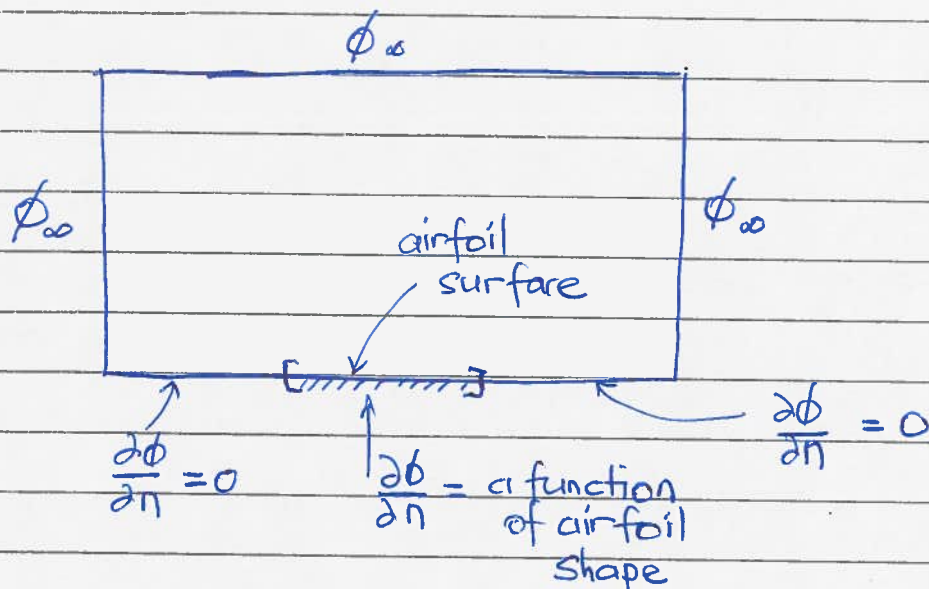 ϕ∞
ϕ∞
ϕ∞
airfoil
surface
∂ϕ/∂n = 0
∂ϕ/∂n = a function
of airfoil
shape
∂ϕ/∂n = 0